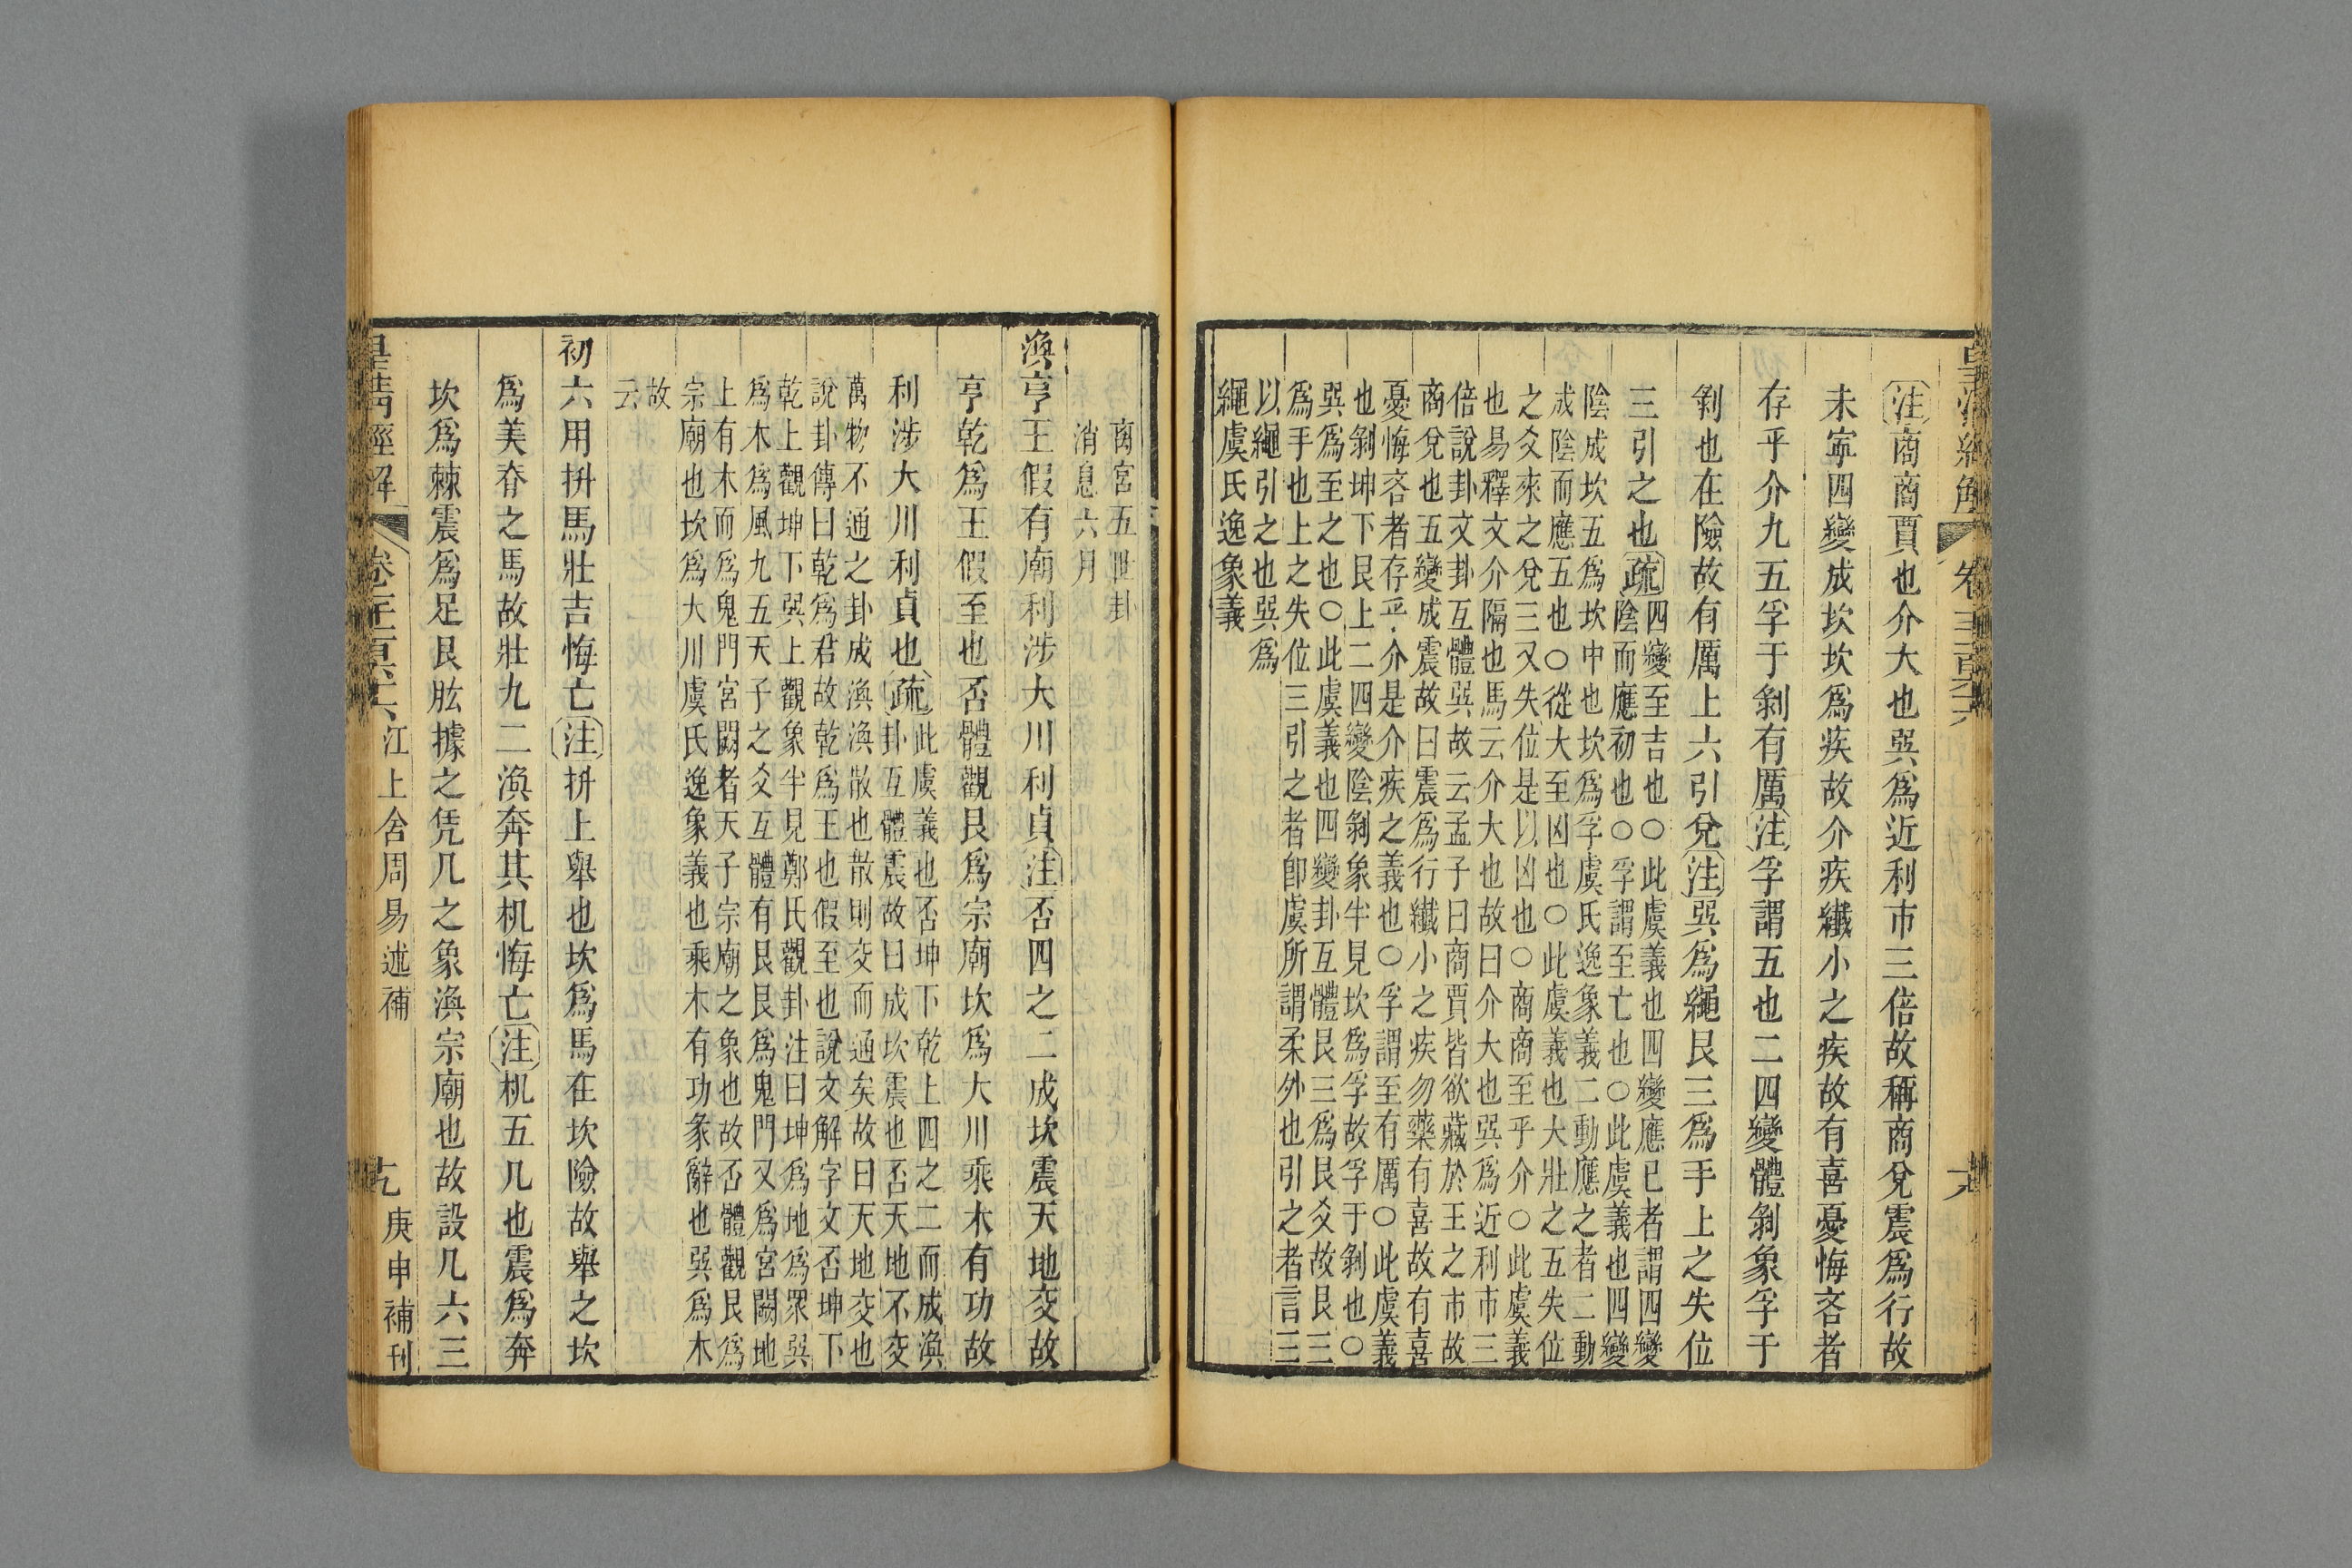 皇清經解
注商商賈也介大也巽爲近利市三倍故稱商兌震爲行故
未寧四變成坎坎爲疾故介疾纖小之疾故有喜憂悔吝者
存乎介九五孚于剝有厲注孚謂五也二四變體剝象孚于
剝也在險故有厲上六引兌注巽爲繩艮三爲手上之失位
三引之也疏四變至吉也○此虞義也四變應已者謂四變
陰而應初也○孚謂至亡也○此虞義也四變
陰成坎五爲坎中也坎爲孚虞氏逸象義二動應之者二動
成陰而應五也○從大至凶也○此虞義也大壯之五失位
之爻來之兌三又失位是以凶也○商商至乎介○此虞義
也易釋文介隔也馬云介大也故曰介大也巽爲近利市三
倍說卦文卦互體巽故云孟子曰商賈皆欲藏於王之市故
商兌也五變成震故曰震爲行纖小之疾勿藥有喜故有喜
憂悔吝者存乎介是介疾之義也○孚謂至有厲○此虞義
也剝坤下艮上二四變陰剝象半見坎爲孚故孚于剝也○
巽爲至之也○此虞義也四變卦互體艮三爲艮爻故艮三
爲手也上之失位三引之者卽虞所謂柔外也引之者言三
以繩引之也巽爲
繩虞氏逸象義
商宮五世卦
消息六月
渙亨王假有廟利涉大川利貞注否四之二成坎震天地交故
亨乾爲王假至也否體觀艮爲宗廟坎爲大川乘木有功故
利涉大川利貞也疏此虞義也否坤下乾上四之二而成渙
卦互體震故曰成坎震也否天地不交
萬物不通之卦成渙渙散也散則交而通矣故曰天地交也
說卦傳曰乾爲君故乾爲王也假至也說文解字文否坤下
乾上觀坤下巽上觀象半見鄭氏觀卦注曰坤爲地爲眾巽
爲木爲風九五天子之爻互體有艮艮爲鬼門又爲宮闕地
上有木而爲鬼門宮闕者天子宗廟之象也故否體觀艮爲
宗廟也坎爲大川虞氏逸象義也乘木有功彖辭也巽爲木
故
云
初六用拚馬壯吉悔亡注拚上舉也坎爲馬在坎險故舉之坎
爲美脊之馬故壯九二渙奔其机悔亡注机五几也震爲奔
坎爲棘震爲足艮肱據之凭几之象渙宗廟也故設几六三
皇清經解
江上舍周易述補
庚申補刊